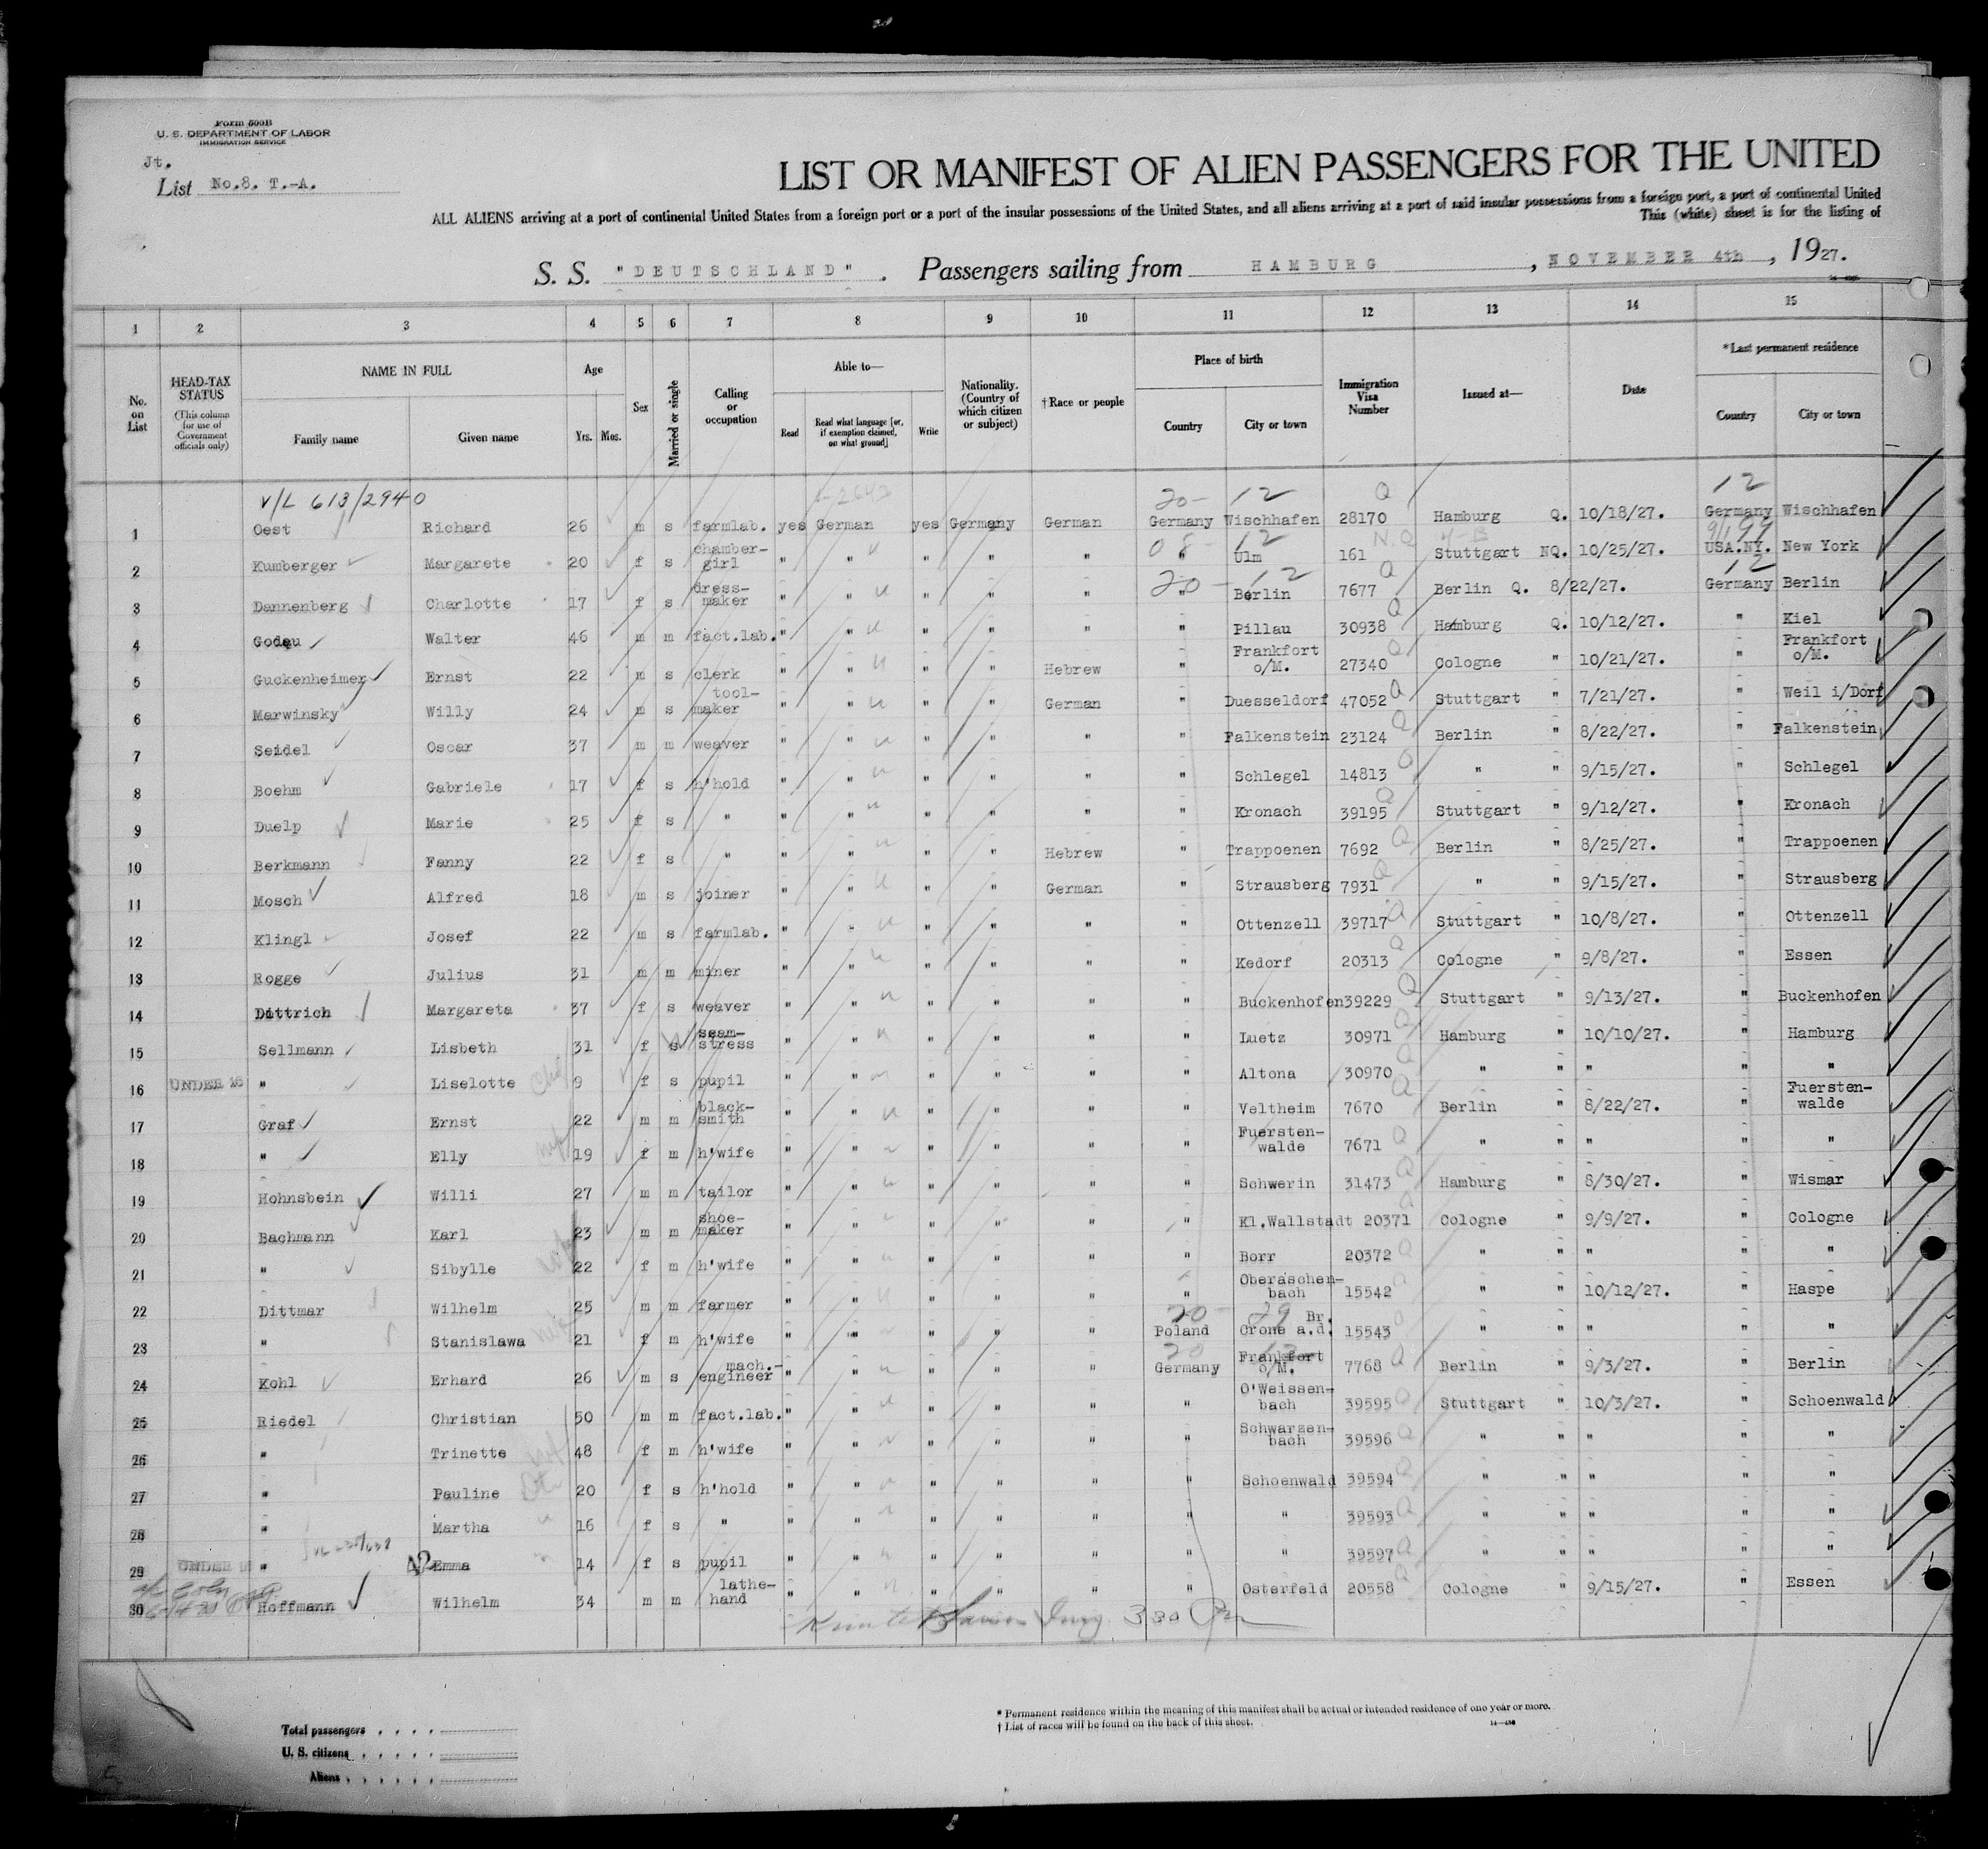 Form 500B
U. S. DEPARTMENT OF LABOR
IMMIGRATION SERVICE
Jt.
List No.8. T.-A.
LIST OR MANIFEST OF ALIEN PASSENGERS FOR THE UNITED
ALL ALIENS arriving at a port of continental United States from a foreign port or a port of the insular possessions of the United States, and all aliens arriving at a port of said insular possessions from a foreign port, a port of continental United
This (white) sheet is for the listing of
S. S. "DEUTSCHLAND". Passengers sailing from HAMBURG, NOVEMBER 4th, 1927.
1 2 3 4 5 6 7 8 9 10 11 12 13 14 15
No. on List HEAD-TAX STATUS (This column for use of Government officials only) NAME IN FULL Family name Given name Age Yrs. Mos. Sex Married or single Calling or occupation Able to— Read Read what language [or, if exemption claimed, on what ground] Write Nationality. (Country of which citizen or subject) †Race or people Place of birth Country City or town Immigration Visa Number Issued at— Date *Last permanent residence Country City or town
V/L 613/2940 20- 12 Q 12
1 Oest Richard 26 m s farmlab. yes German yes Germany German Germany Wischhafen 28170 Hamburg Q. 10/18/27. Germany Wischhafen
2 Kumberger Margarete 20 f s chamber-girl " " " " " " Ulm 161 Stuttgart NQ. 10/25/27. USA.NY. New York
3 Dannenberg Charlotte 17 f s dress-maker " " " " " " Berlin 7677 Berlin Q. 8/22/27. Germany Berlin
4 Godau Walter 46 m m fact.lab. " " " " " " Pillau 30938 Hamburg Q. 10/12/27. " Kiel
5 Guckenheimer Ernst 22 m s clerk " " " " Hebrew " Frankfort o/M. 27340 Cologne " 10/21/27. " Frankfort o/M.
6 Marwinsky Willy 24 m s tool-maker " " " " German " Duesseldorf 47052 Stuttgart " 7/21/27. " Weil i/Dorf
7 Seidel Oscar 37 m m weaver " " " " " " Falkenstein 23124 Berlin " 8/22/27. " Falkenstein
8 Boehm Gabriele 17 f s h'hold " " " " " " Schlegel 14813 " " 9/15/27. " Schlegel
9 Duelp Marie 25 f s " " " " " " " Kronach 39195 Stuttgart " 9/12/27. " Kronach
10 Berkmann Fanny 22 f s " " " " " Hebrew " Trappoenen 7692 Berlin " 8/25/27. " Trappoenen
11 Mosch Alfred 18 m s joiner " " " " German " Strausberg 7931 " " 9/15/27. " Strausberg
12 Klingl Josef 22 m s farmlab. " " " " " " Ottenzell 39717 Stuttgart " 10/8/27. " Ottenzell
13 Rogge Julius 31 m m miner " " " " " " Kedorf 20313 Cologne " 9/8/27. " Essen
14 Dittrich Margareta 37 f s weaver " " " " " " Buckenhofen 39229 Stuttgart " 9/13/27. " Buckenhofen
15 Sellmann Lisbeth 31 f s seam-stress " " " " " " Luetz 30971 Hamburg " 10/10/27. " Hamburg
16 UNDER 16 " Liselotte 9 f s pupil " " " " " " Altona 30970 " " " " "
17 Graf Ernst 22 m m black-smith " " " " " " Veltheim 7670 Berlin " 8/22/27. " Fuersten-walde
18 " Elly 19 f m h'wife " " " " " " Fuersten-walde 7671 " " " " "
19 Hohnsbein Willi 27 m m tailor " " " " " " Schwerin 31473 Hamburg " 8/30/27. " Wismar
20 Bachmann Karl 23 m m shoe-maker " " " " " " Kl.Wallstadt 20371 Cologne " 9/9/27. " Cologne
21 " Sibylle 22 f m h'wife " " " " " " Borr 20372 " " " " "
22 Dittmar Wilhelm 25 m m farmer " " " " " " Oberaschen-bach 15542 " " 10/12/27. " Haspe
23 " Stanislawa 21 f m h'wife " " " " " Poland Crone a.d. Br. 15543 " " " " "
24 Kohl Erhard 26 m s mach.-engineer " " " " " Germany Frankfort o/M. 7768 Berlin " 9/3/27. " Berlin
25 Riedel Christian 50 m m fact.lab. " " " " " " O'Weissen-bach 39595 Stuttgart " 10/3/27. " Schoenwald
26 " Trinette 48 f m h'wife " " " " " " Schwarzen-bach 39596 " " " " "
27 " Pauline 20 f s h'hold " " " " " " Schoenwald 39594 " " " " "
28 " Martha 16 f s " " " " " " " " 39593 " " " " "
29 UNDER 16 " Emma 14 f s pupil " " " " " " " 39597 " " " " "
30 Hoffmann Wilhelm 34 m m lathe-hand " " " " " " Osterfeld 20558 Cologne " 9/15/27. " Essen
Total passengers
U. S. citizens
Aliens
* Permanent residence within the meaning of this manifest shall be actual or intended residence of one year or more.
† List of races will be found on the back of this sheet.